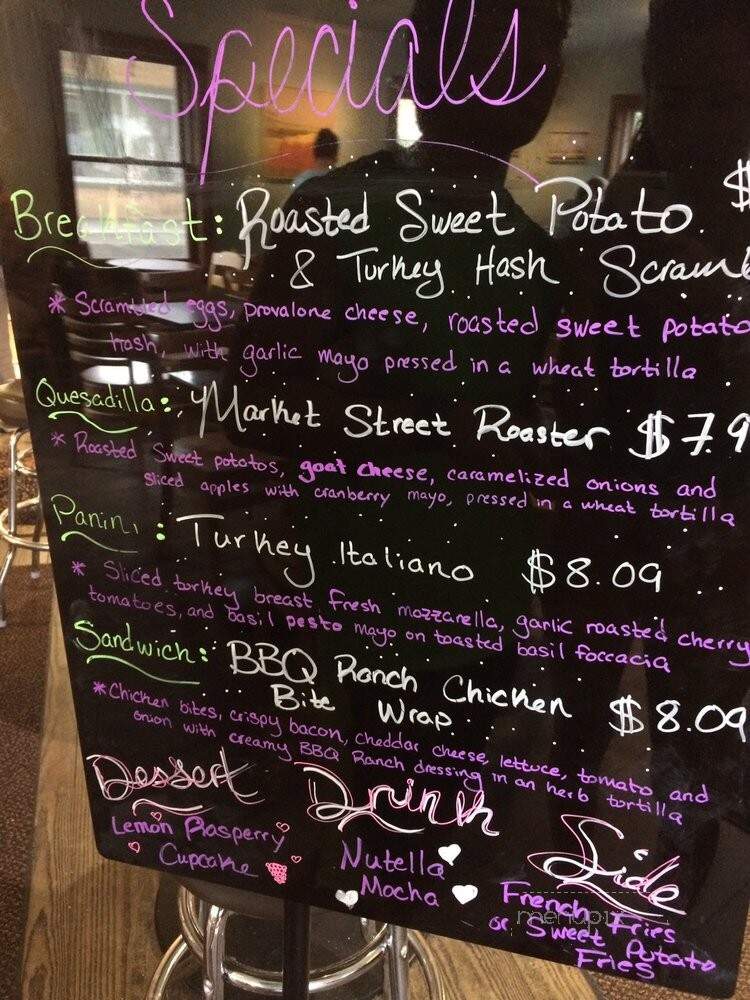 Specials
Breakfast: Roasted Sweet Potato $
& Turkey Hash Scramb
* Scrambled eggs, provalone cheese, roasted sweet potato
hash, with garlic mayo pressed in a wheat tortilla
Quesadilla: Market Street Roaster $7.9
* Roasted Sweet potatos, goat cheese, caramelized onions and
sliced apples with cranberry mayo, pressed in a wheat tortilla
Panini: Turkey Italiano $8.09
* Sliced turkey breast fresh mozzarella, garlic roasted cherry
tomatoes, and basil pesto mayo on toasted basil foccacia
Sandwich: BBQ Ranch Chicken $8.09
Bite Wrap
* Chicken bites, crispy bacon, cheddar cheese, lettuce, tomato and
onion with creamy BBQ Ranch dressing in an herb tortilla
Dessert
Lemon Rasperry
Cupcake
Drink
Nutella
Mocha
Side
French Fries
or Sweet Potato
Fries